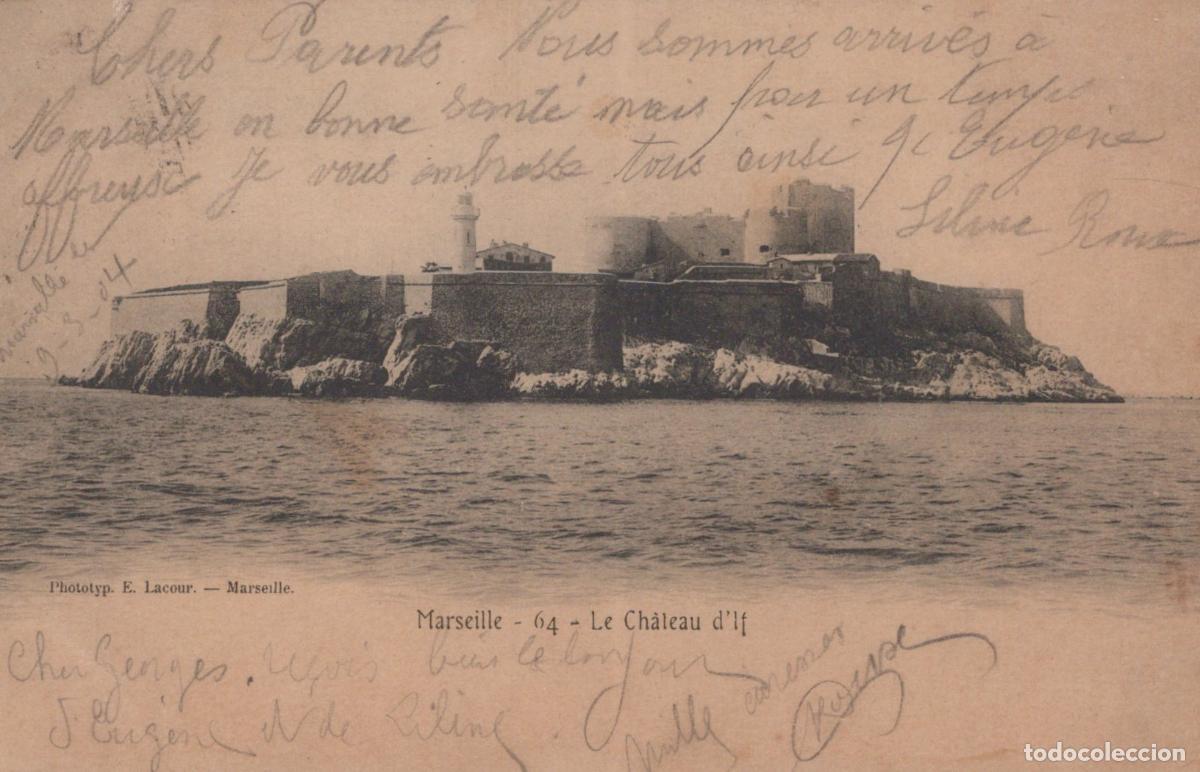 Chers Parents Nous sommes arrivés à
Marseille en bonne santé mais pour un temps
affreuse Je vous embrasse tous ainsi q Eugène
Liline Roux
Marseille le
9-3-04
Phototyp. E. Lacour. — Marseille.
Marseille - 64 - Le Château d'If
Cher Georges. reçois bien le bonjour
d'Eugène et de Liline.
Mille caresses
todocoleccion